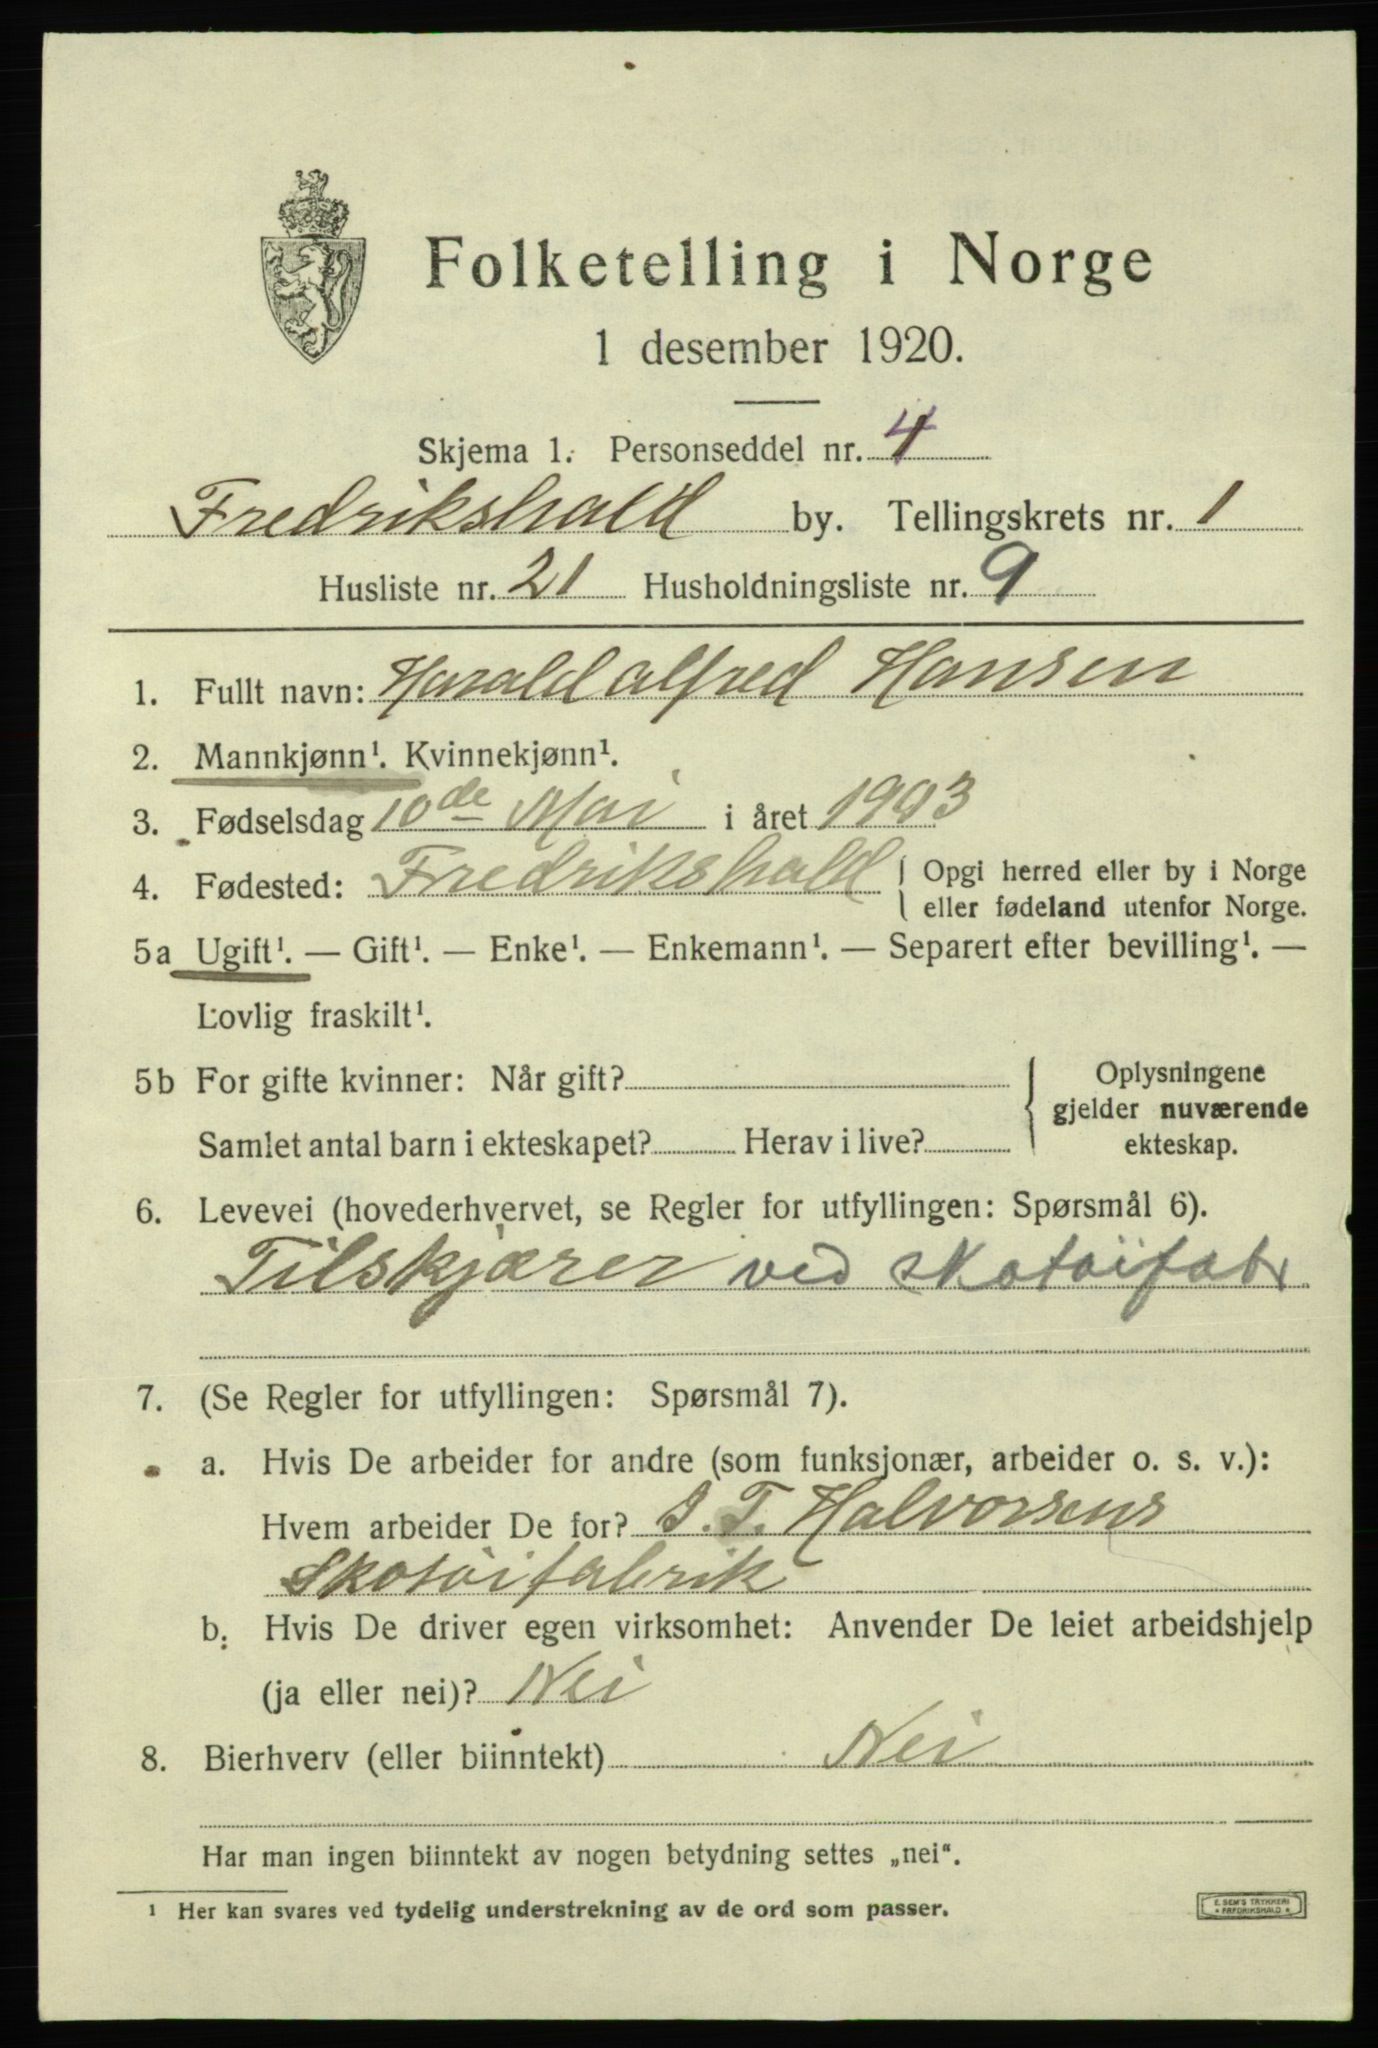 Folketelling i Norge
1 desember 1920.
Skjema 1. Personseddel nr. 4
Fredrikshald by. Tellingskrets nr. 1
Husliste nr. 21 Husholdningsliste nr. 9
1. Fullt navn: Harald Alfred Hansen
2. Mannkjønn¹. Kvinnekjønn¹.
3. Fødselsdag 10de Mai i året 1903
4. Fødested: Fredrikshald { Opgi herred eller by i Norge
eller fødeland utenfor Norge.
5a Ugift¹. — Gift¹. — Enke¹. — Enkemann¹. — Separert efter bevilling¹. —
Lovlig fraskilt¹.
5b For gifte kvinner: Når gift? { Oplysningene
gjelder nuværende
Samlet antal barn i ekteskapet? Herav i live? ekteskap.
6. Levevei (hovederhvervet, se Regler for utfyllingen: Spørsmål 6).
Tilskjærer ved skotøifabr
7. (Se Regler for utfyllingen: Spørsmål 7).
a. Hvis De arbeider for andre (som funksjonær, arbeider o. s. v.):
Hvem arbeider De for? J. T. Halvorsens
Skotøifabrik
b. Hvis De driver egen virksomhet: Anvender De leiet arbeidshjelp
(ja eller nei)? Nei
8. Bierhverv (eller biinntekt) Nei
Har man ingen biinntekt av nogen betydning settes „nei“.
¹ Her kan svares ved tydelig understrekning av de ord som passer.
E. SEM'S TRYKKERI
* FREDRIKSHALD *